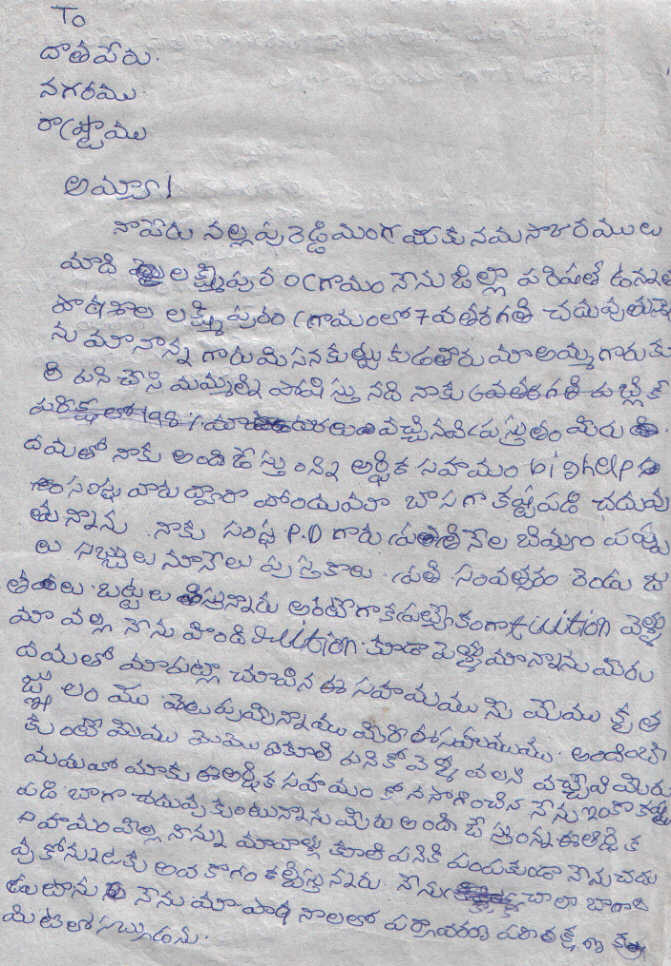 To
దాతపేరు.
నగరము
రాష్ట్రాము
అమ్మా!
నాపేరు నల్లపురెడ్డి మంగ యకు నమసాకరములు
మాది లక్ష్మీపురం గ్రామం నేను జిల్లా పరిషత్ ఉన్నత
పాఠశాల లక్ష్మీపురం గ్రామంలో 7వతరగతి చదువుతున్నా
ను మా నాన్న గారు మిసనకుట్టు కుడతారు మా అమ్మ గారు కు
లి పని చేసి మమ్మల్ని పోషి స్తు నది నాకు 6వతరగతి పబ్లిక్
పరీక్షలో వచ్చినవి ప్రస్తుతం మీరు
దయతో నాకు అంది జే స్తు న్న ఆర్థిక సహాయం bighelp
సంస్థ వారు ద్వారా పొందుచూ బాసగా కష్టపడి చదువు
తున్నాను. నాకు సంస్థ P.D గారు ప్రతి నెల బియ్యం పప్పు
లు సబ్బులు నూనేలు పుస్తకాలు. ప్రతి సంవత్సరం రెండు జ
తలు బట్టలు తెస్తున్నారు అంతేగాక ప్రత్యేకంగా tuition పెట్టి
మా వల్ల నేను హిందీ tuition కూడా మీరు
దయతో మా పట్ల చూపిన ఈ సహాయము ను మేము కృత
జ్ఞ లం ము తెలుపుచున్నాము మీరు ఈ సహాయము అందించ
కుంటే మేము కూలి పనికో వెళ్ళ వలసి వచ్చేది మీరు
మాకు ఈ ఆర్థిక సహాయం కొనసాగించిన నేను ఇంకా కష్ట
పడి బాగా చదువుకుంటున్నాను మీరు అంది జే స్తున్న ఈ ఆర్థిక
సహాయం వల్ల నన్ను మావాళ్లు కూలి పనికి పంపకుండా నేను చదు
వుకోనుటకు అవకాశం కల్పిస్తున్నారు నేను చాలా బాగా
ఉంటాను నేను మా పాఠశాలలో పర్యావరణ పరిరక్షణ క
మిటిలో సభ్యుడను.